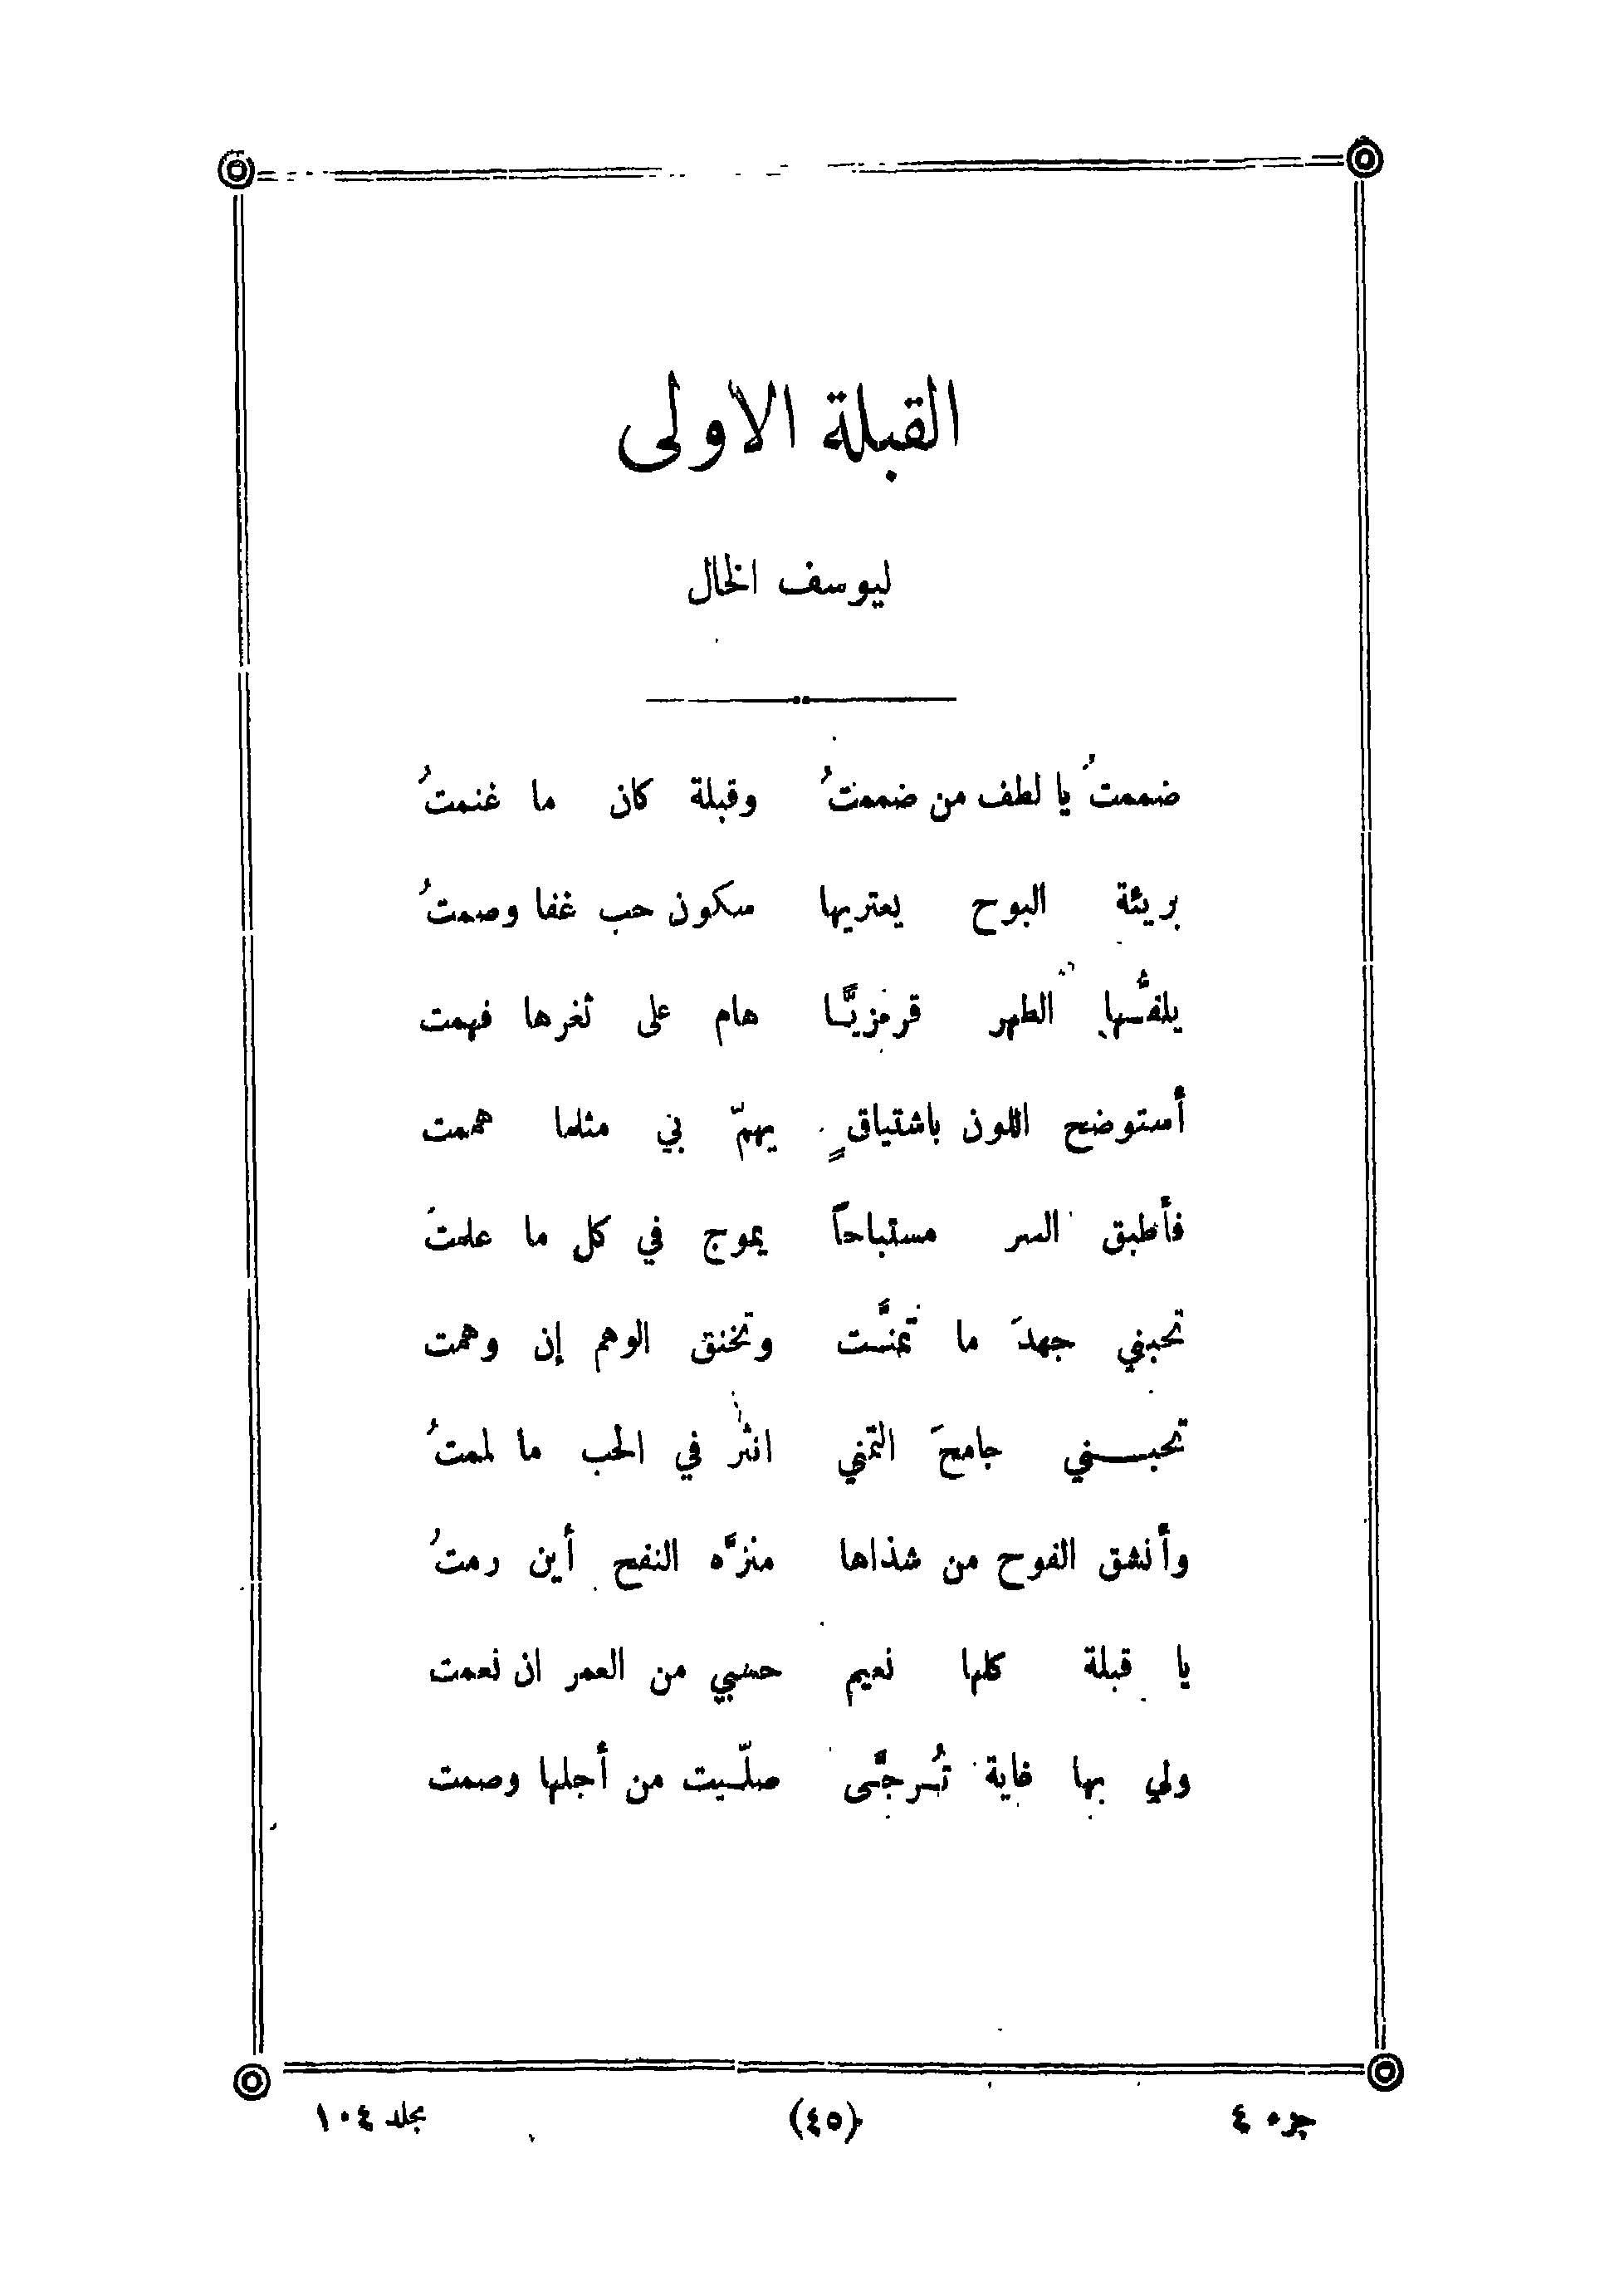 القبلة الاولى
ليوسف الخال
ضممتُ يا لطف من ضممتُ وقبلة كان ما غنمتُ
بريئة البوح يعتريها سكون حب غفا وصمتُ
يلفُّها الطهر قرمزيًّا هام على ثغرها فهمت
أستوضح اللون باشتياقٍ يهمّ بي مثلما هممت
فأطبق السر مستباحاً يموج في كل ما علمتُ
تحبني جهدَ ما تمنَّت وتخنق الوهم إن وهمت
تحبني جامحَ التمني انثر في الحب ما لممتُ
وأنشق الفوح من شذاها منزَّه النفح أين رمتُ
يا قبلة كلها نعيم حسبي من العمر ان نعمت
ولي بها غاية تُرجَّى صلّيت من أجلها وصمت
جزء ٤ (٤٥) مجلد ١٠٤